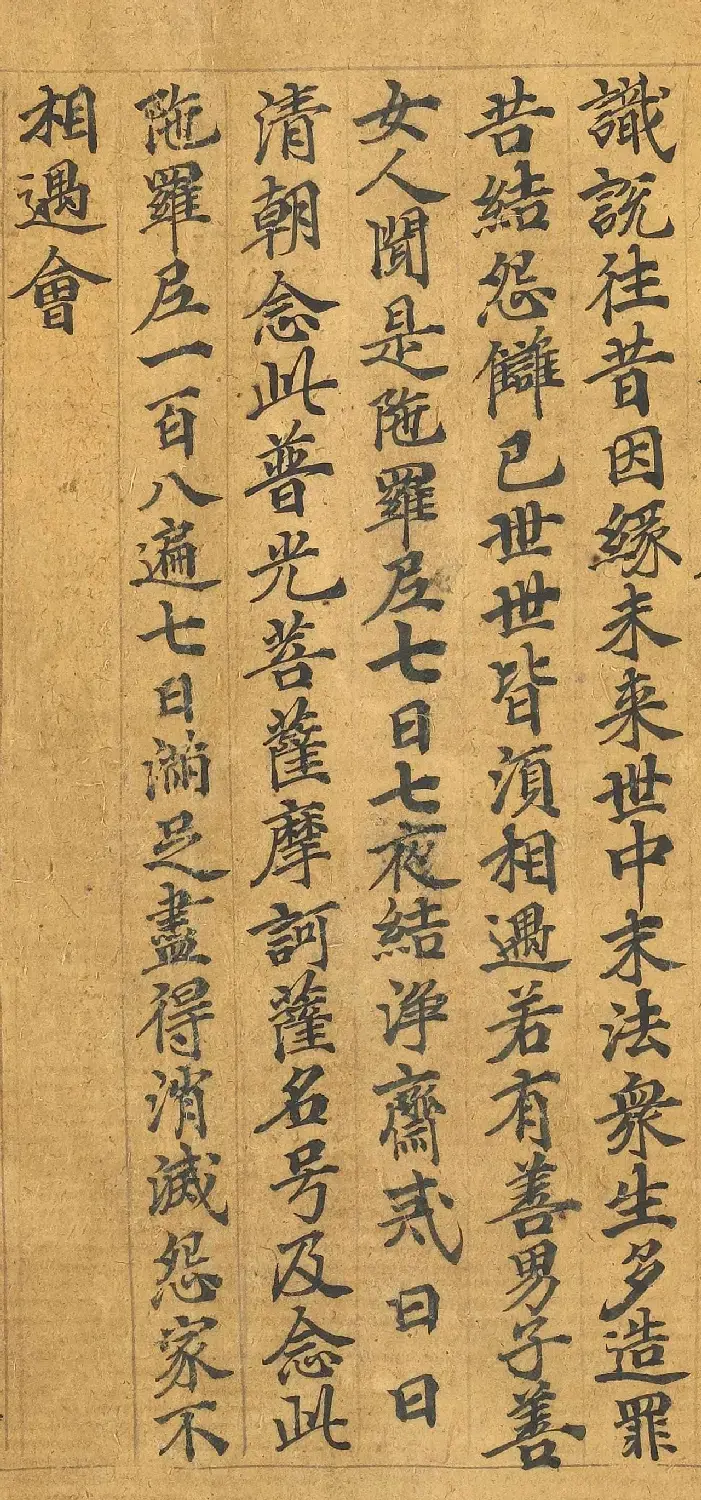 識說往昔因緣未来世中末法衆生多造罪
苦結怨讎已世世皆須相遇若有善男子善
女人聞是陁羅尼七日七夜結淨齋戒日日
清朝念此普光菩薩摩訶薩名号及念此
陁羅尼一百八遍七日滿足盡得消滅怨家不
相遇會